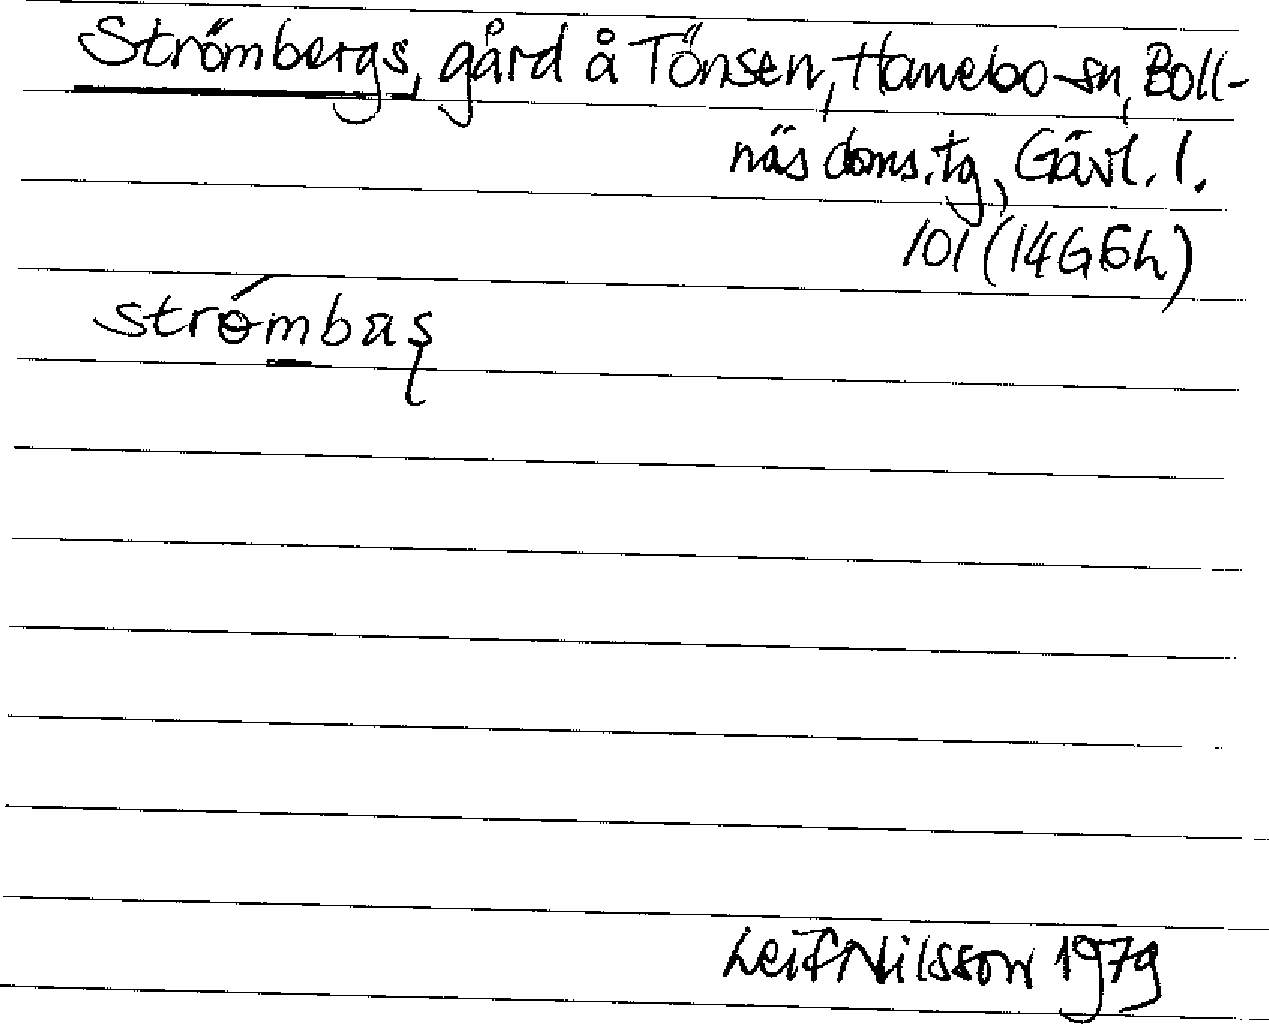 Strömbergs, gård å Tönsen, Hanebo sn, Boll-
näs doms.tg, Gävl. l.
101 (14G6h)
strömbaʂ
Leif Nilsson 1979